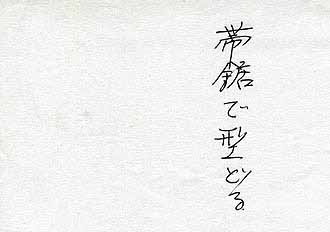 帯鋸で型どる